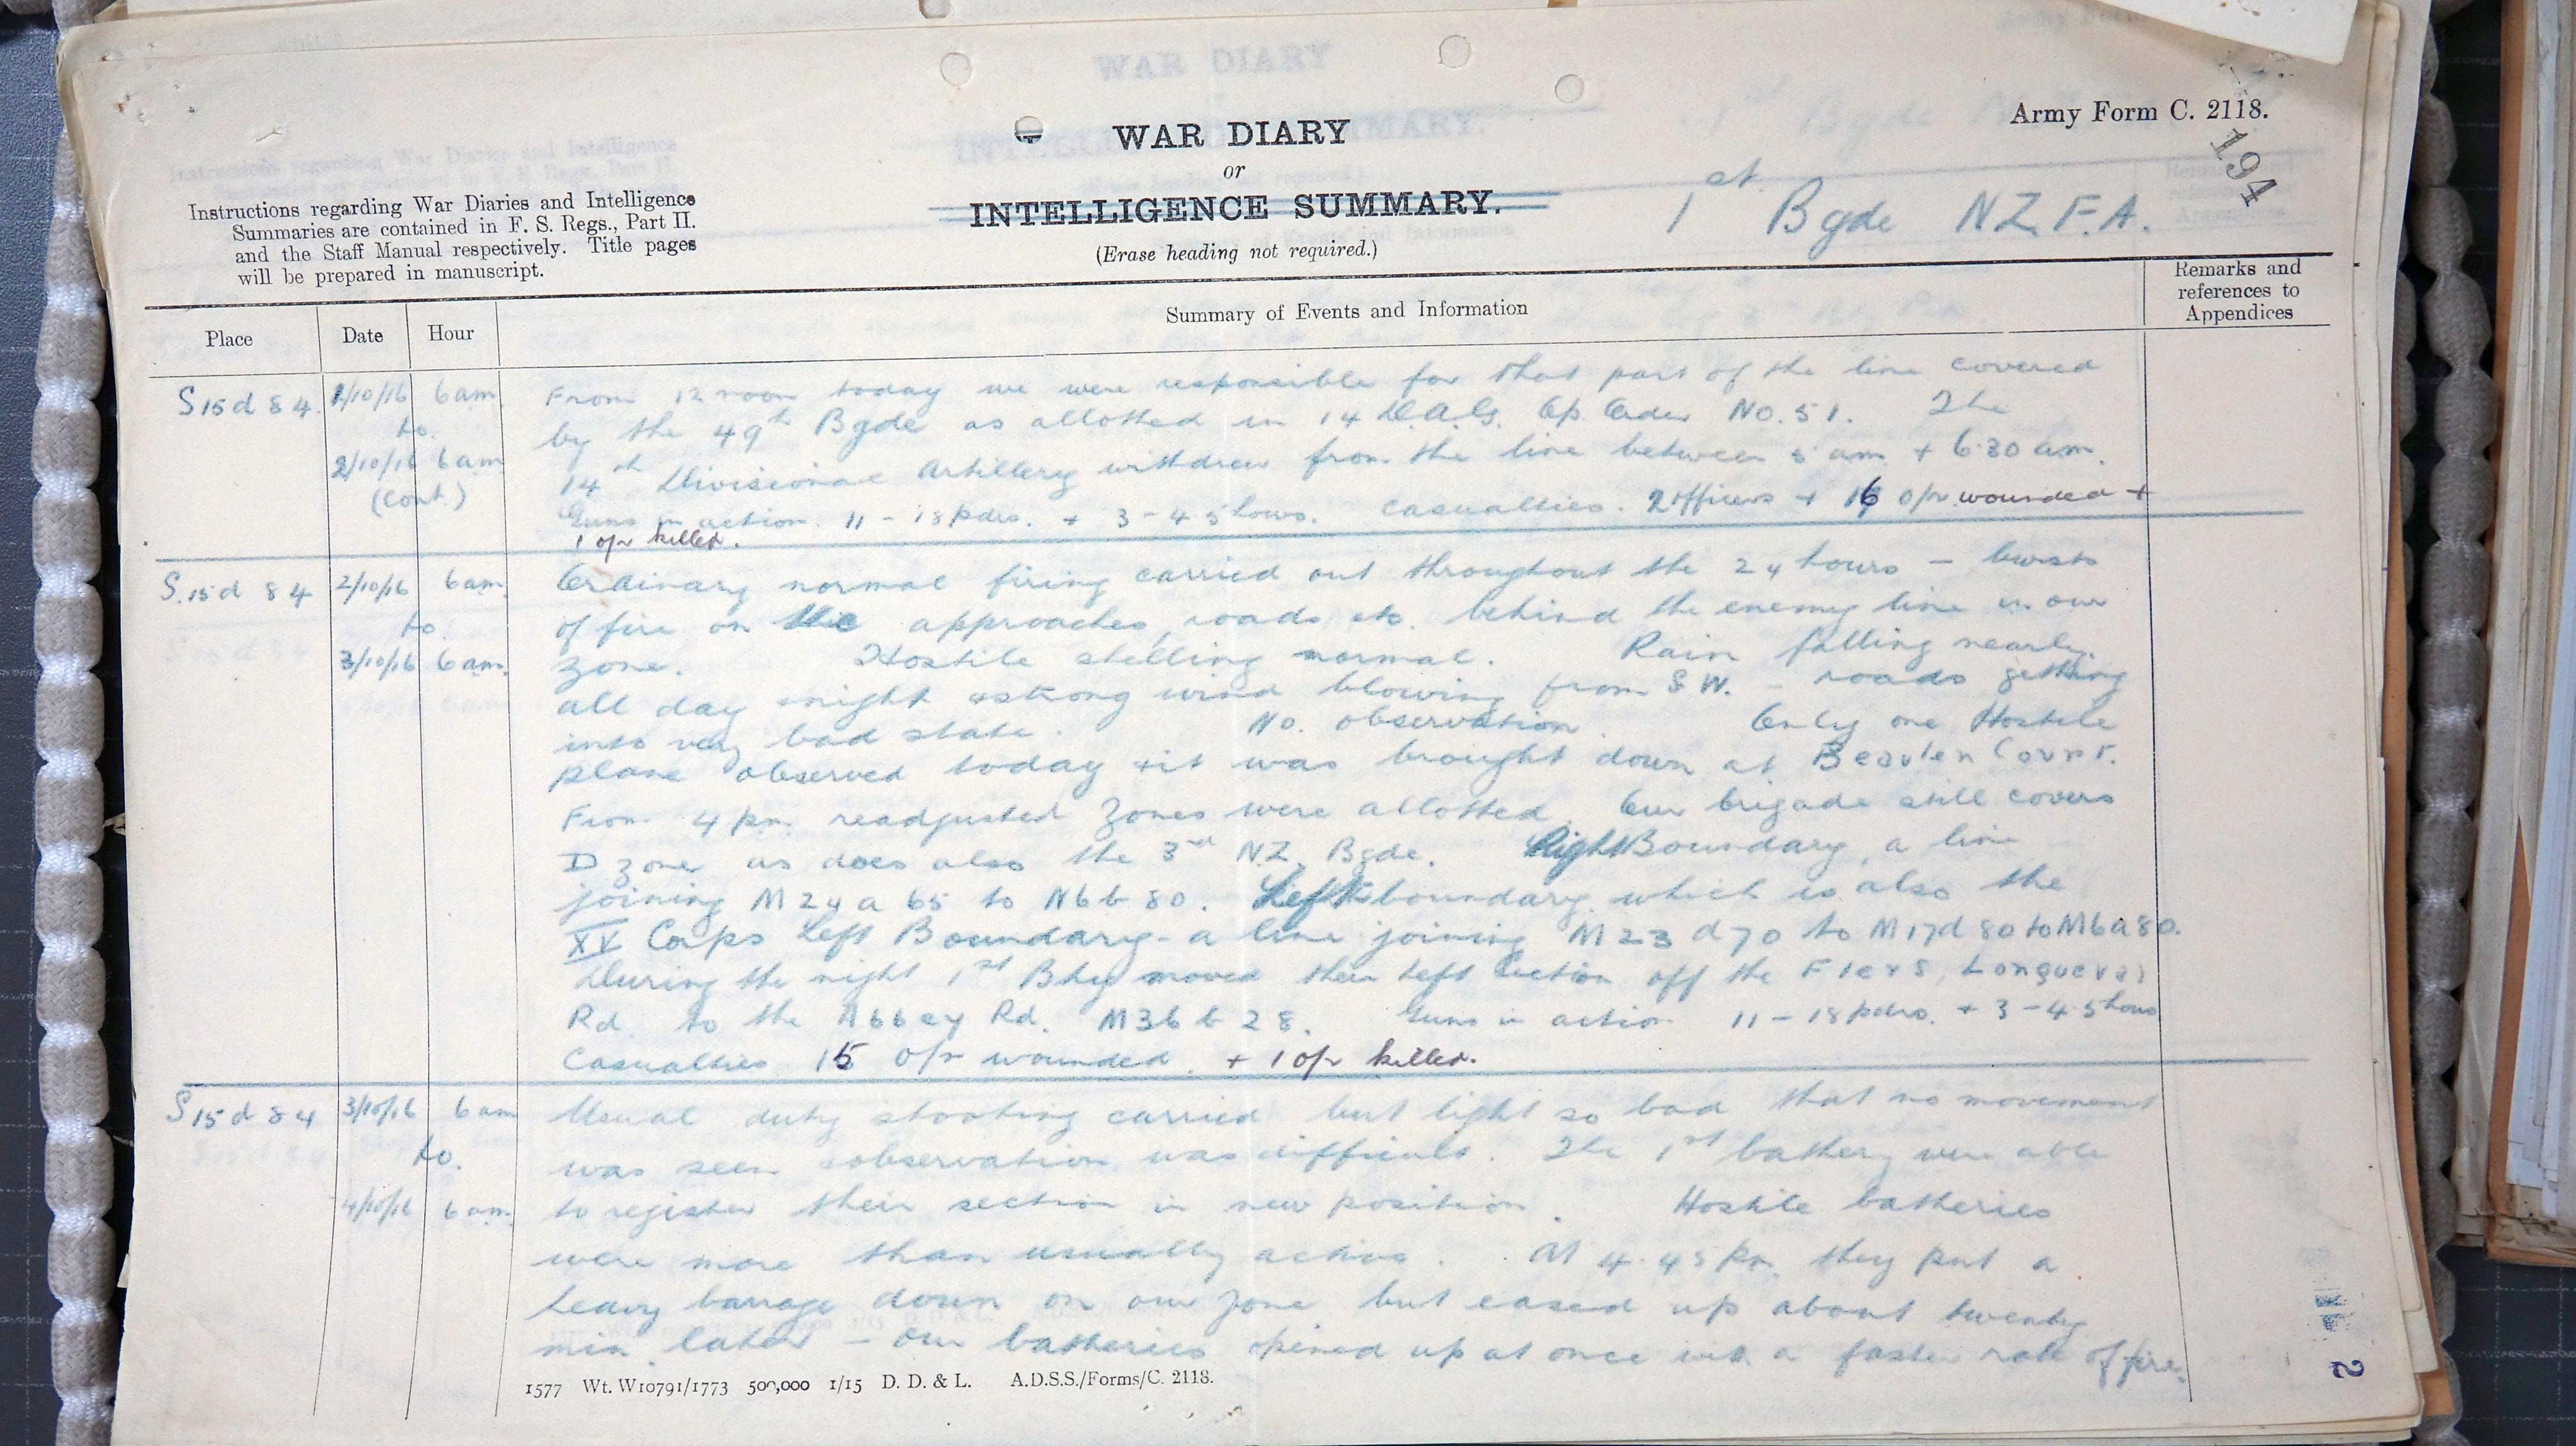 Army Form C. 2118.
194
WAR DIARY
or
INTELLIGENCE SUMMARY.
(Erase heading not required.)
Instructions regarding War Diaries and Intelligence
Summaries are contained in F. S. Regs., Part II.
and the Staff Manual respectively. Title pages
will be prepared in manuscript.
1st Bgde N.Z.F.A.
Place
Date
Hour
Summary of Events and Information
Remarks and
references to
Appendices
S 15 d 8 4. 1/10/16 6 am
to.
2/10/16 6 am
(Cont.)
From 12 noon today we were responsible for that part of the line covered
by the 49th Bgde as allotted in 14 D.A.G. Op. Order No. 51. The
14th Divisional Artillery withdrew from the line between 5 am + 6.30 am.
Guns in action. 11 - 18 pdrs. + 3 - 4.5 hows. Casualties. 2 Officers + 16 o/r wounded +
1 o/r killed.
S. 15 d 8 4 2/10/16 6 am
to.
3/10/16 6 am.
Ordinary normal firing carried out throughout the 24 hours - bursts
of fire on the approaches, roads etc. behind the enemy line in our
zone. Hostile shelling normal. Rain falling nearly
all day + night + strong wind blowing from S W. - roads getting
into very bad state. No. observation. Only one Hostile
plane observed today + it was brought down at Beaulen Court.
From 4 pm. readjusted zones were allotted. Our brigade still covers
D zone as does also the 3rd N.Z. Bgde. Right Boundary, a line
joining M 24 a 65 to N 6 b 80. Left boundary which is also the
XV Corps Left Boundary - a line joining M 23 d 70 to M 17 d 80 to M 6 a 80.
During the night 1st Bty moved their left Section off the Flers, Longueval
Rd. to the Abbey Rd. M 36 b 28. Guns in action 11 - 18 pdrs. + 3 - 4.5 hows
Casualties 15 o/r wounded. + 1 o/r killed.
S 15 d 8 4 3/10/16 6 am
to.
4/10/16 6 am.
Usual duty shooting carried but light so bad that no movement
was seen + observation was difficult. The 1st battery were able
to register their section in new position. Hostile batteries
were more than usually active. At 4.45 pm. they put a
heavy barrage down on our zone but eased up about twenty
min. later - our batteries opened up at once with a faster rate of fire.
1577 Wt. W10791/1773 500,000 1/15 D. D. & L. A.D.S.S./Forms/C. 2118.
2